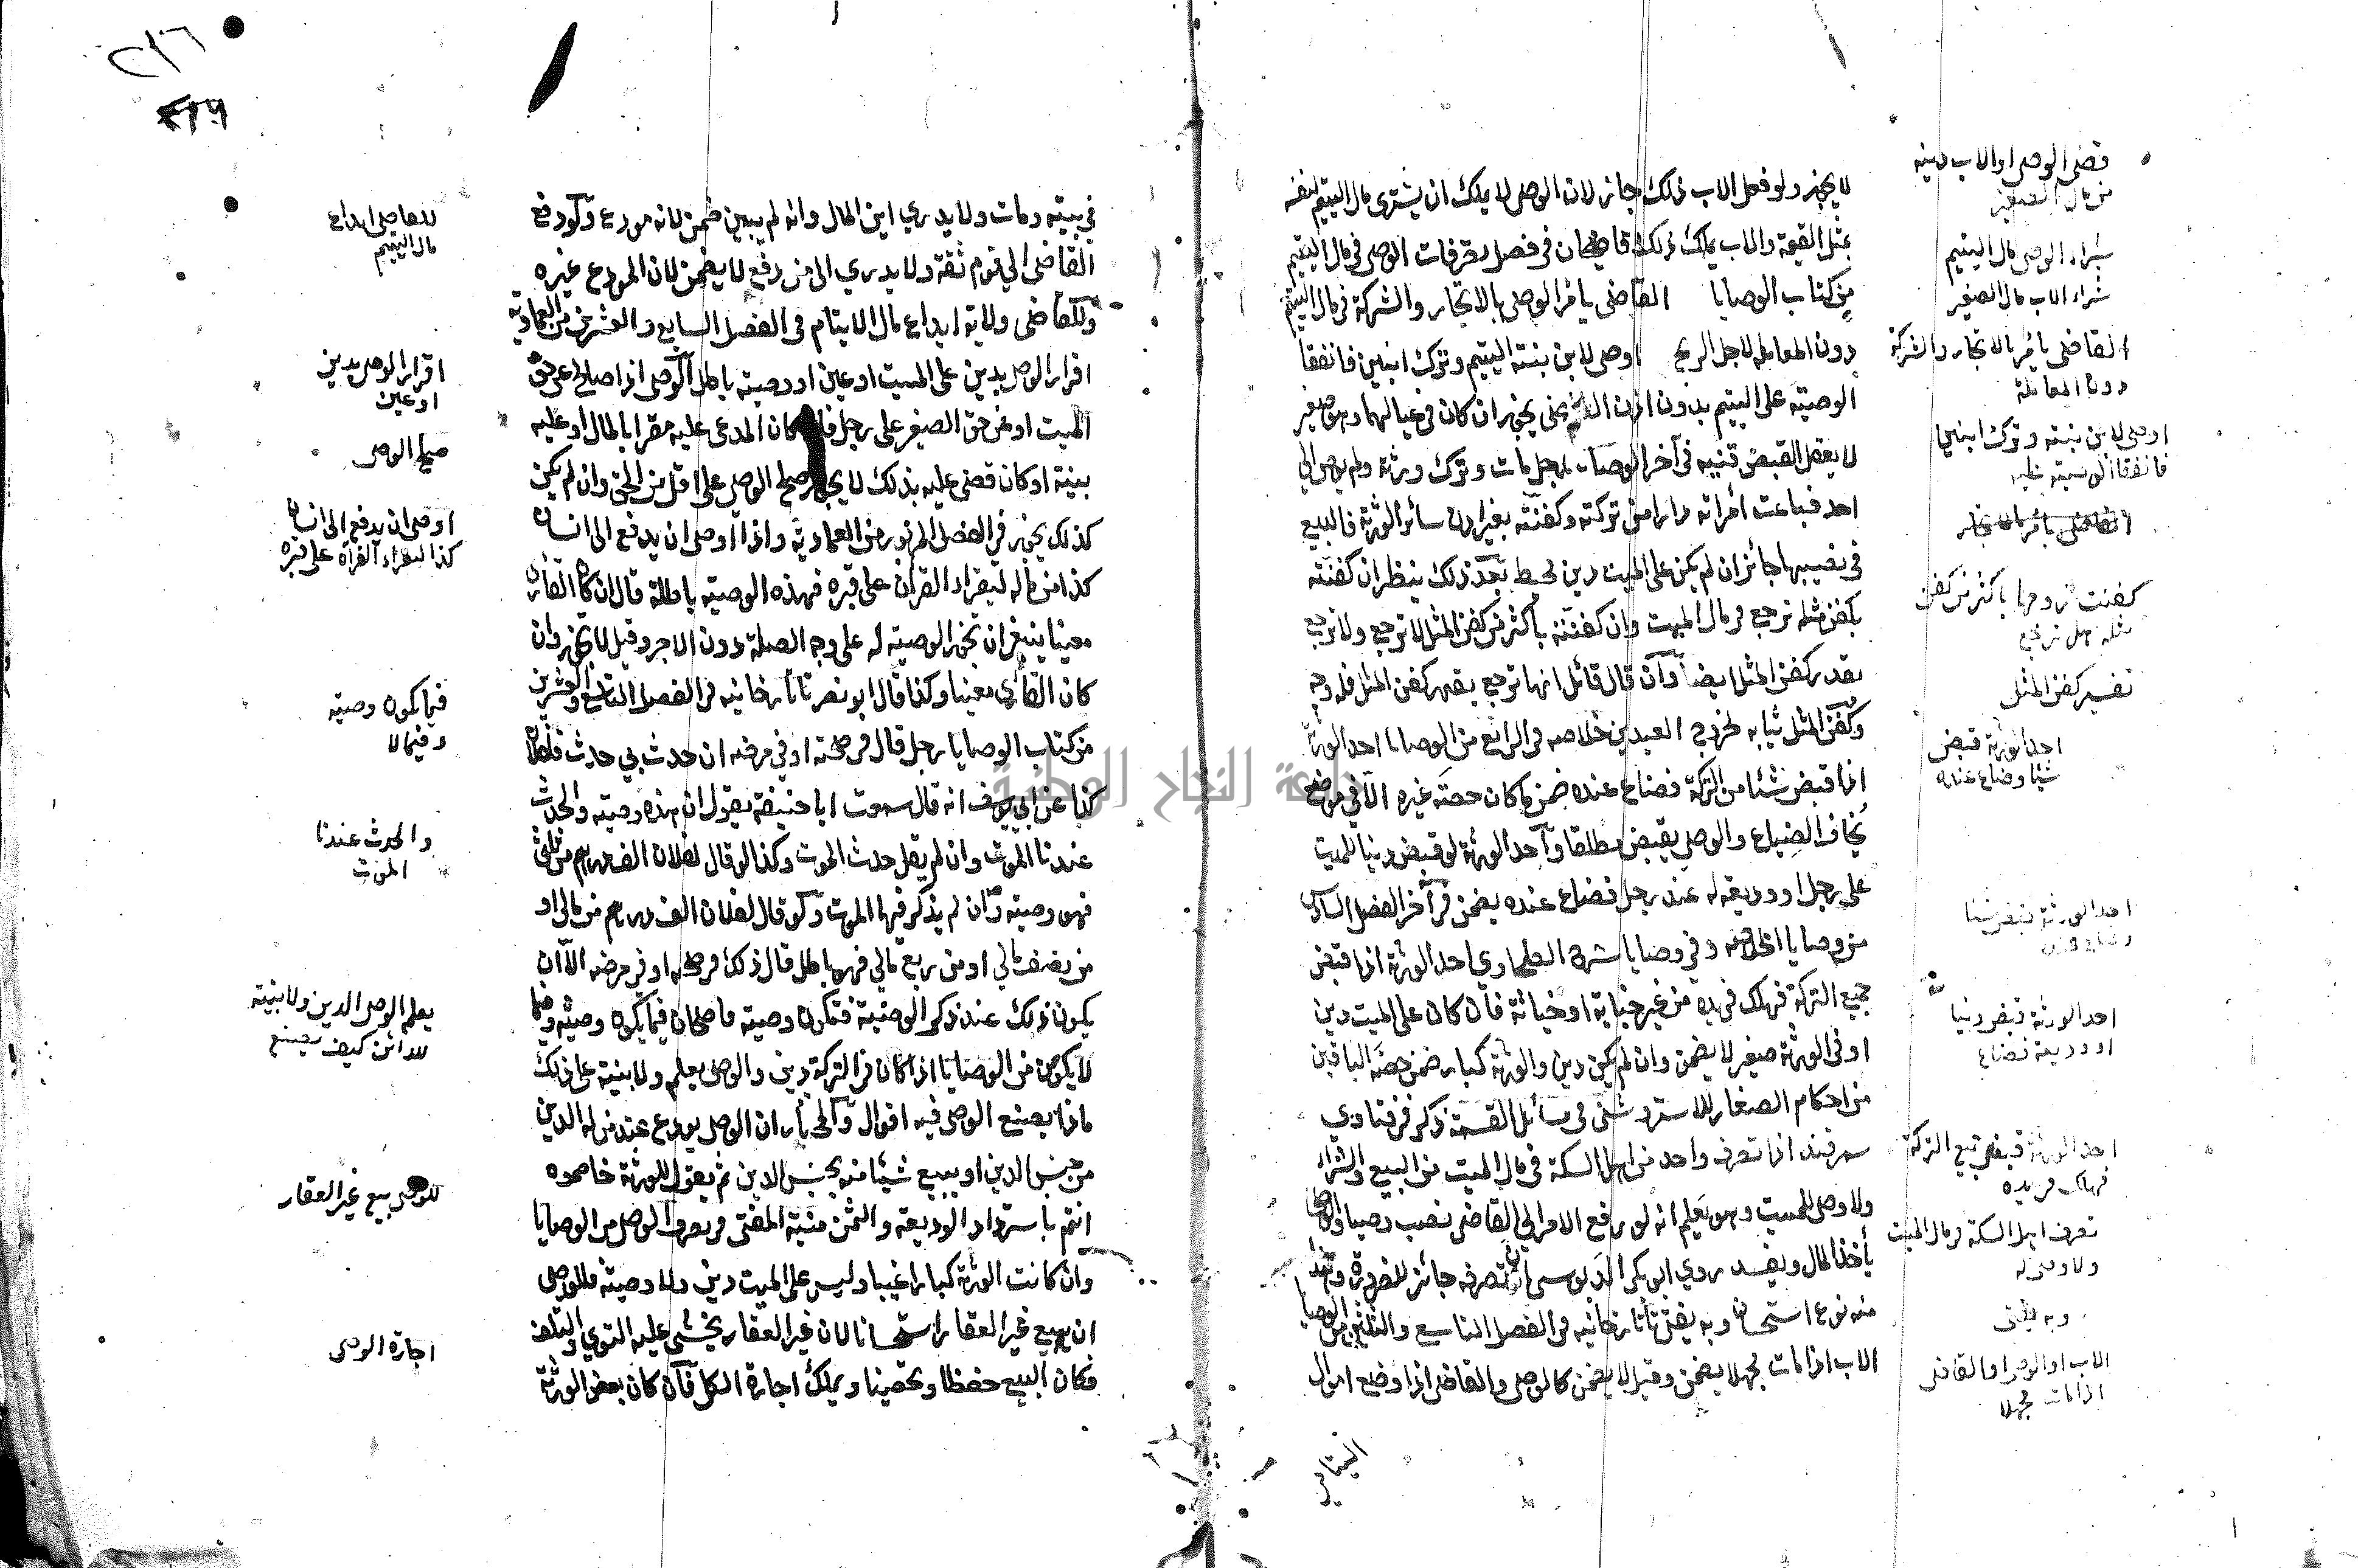 لا يجوز ولو فعل الاب ذلك جاز لان الوصى لا يملك ان يشترى مال اليتيم لنفسه
بمثل القيمة والاب يملك ذلك قاضيخان فى فصل تصرفات الوصى فى مال اليتيم
من كتاب الوصايا القاضى يامر الوصى بالاتجار والشركة فى مال اليتيم
دون المعاملة لاجل الربح اوصى لابن بنته اليتيم وترك ابنين فانفقا
الوصية على اليتيم بدون اذن القاضى يجوز ان كان فى عيالهما وهو صغير
لا يعقل القبض قنيه فى آخر الوصايا رجل مات وترك ورثة ولم يوص الى
احد فباعت امراته دارا من تركته وكفنته بغير اذن سائر الورثة فالبيع
فى نصيبها جائز ان لم يكن على الميت دين محيط بعد ذلك ينظر ان كفنته
بكفن مثله ترجع فى مال الميت وان كفنته باكثر من كفن المثل لا ترجع ولا ترجع
بقدر كفن المثل ايضا وان قال قائل انها ترجع بقدر كفن المثل فله وجه
وكفن المثل ثيابه لخروج العيدين خلاصه فى الرابع من الوصايا احد الورثة
اذا قبض شئا من التركة فضاع عنده ضمن ما كان حصة غيره الا فى موضع
يخاف الضياع والوصى يقبض مطلقا واحد الورثة لو قبض دينا للميت
على رجل او وديعه له عند رجل فضاع عنده يضمن فى آخر الفصل السادس
من وصايا الخلاصه وفى وصايا شرح الطحاوى احد الورثة اذا قبض
جميع التركة فهلك فى يده من غير جناية او خيانة فان كان على الميت دين
او فى الورثة صغير لا يضمن وان لم يكن دين والورثة كبار ضمن حصة الباقين
من احكام الصغار للاستروشنى فى مسائل القسمة ذكر فى فتاوى
سمرقند اذا تصرف واحد من اهل السكة فى مال الميت من البيع والشراء
ولا وصى للميت وهو يعلم انه لو رفع الامر الى القاضى نصب وصيا والقاضى
ياخذ المال ويفسد روى ابو بكر الدبوسى ان تصرفه جائز للضرورة وهذا
منه نوع استحسان وبه يفتى تاتارخانيه فى الفصل التاسع والثلثين من الوصايا
الاب اذا مات مجهلا يضمن وقيل لا يضمن كالوصى والقاضى اذا وضع اموال
قضى الوصى او الاب دينه
من مال الصغير
شراء الوصى مال اليتيم
شراء الاب مال الصغير
القاضى يامر بالاتجار والشركة
دون المعاملة
اوصى لابن بنته وترك ابنين
فانفقا الوصية عليه
كفنت زوجها باكثر من كفن
مثله هل ترجع
تفسير كفن المثل
احد الورثة قبض
شئا وضاع عنده
احد الورثة قبض شئا
احد الورثة قبض دينا
او وديعة فضاع
احد الورثة قبض جميع التركة
فهلك فى يده
تصرف اهل السكة فى مال الميت
ولا وصى له
وبه يفتى
الاب او الوصى او القاضى
اذا مات مجهلا
فى بيته ومات ولا يدرى اين المال وانه لم يبين ضمن لانه مودع ولو دفع
القاضى الى قوم ثقة ولا يدرى الى من دفع لا يضمن لان المودع غيره
وللقاضى ولاية ايداع مال الايتام فى الفصل السابع والعشرين من العمادية
اقرار الوصى بدين على الميت او عين او وصيته باطل الوصى اذا صالح عن حق
الميت او عن حق الصغير على رجل فان كان المدعى عليه مقرا بالمال او عليه
بينة او كان قضى عليه بذلك لا يجوز صلح الوصى على اقل من الحق وان لم يكن
كذلك يجوز فى الفصل المزبور من العمادية واذا اوصى ان يدفع الى انسان
كذا من ماله ليقراء القران على قبره فهذه الوصية باطلة قال ان كان القارى
معينا ينبغى ان تجوز الوصية له على وجه الصلة دون الاجر وقيل لا تجوز وان
كان القارى معينا وكذا قال ابو نصر تاتارخانيه فى الفصل التاسع والعشرين
من كتاب الوصايا رجل قال فى صحته او فى مرضه ان حدث بى حدث فلفلان
كذا عن ابى يوسف انه قال سمعت ابا حنيفة يقول ان هذه وصية والحدث
عندنا الموت وان لم يقل حدث الموت وكذا لو قال لفلان الف درهم من ثلثى
فهو وصيه وان لم يذكر فيها الموت ولو قال لفلان الف درهم من مالى او
من نصف مالى او من ربع مالى فهو باطل قال ذلك فى صحته او فى مرضه الا ان
يكون ذلك عند ذكر الوصية فتكون وصية قاضيخان فيما يكون وصية وفيما
لا يكون من الوصايا اذا كان فى التركة دين والوصى يعلم ولا بينة على ذلك
ماذا يصنع الوصى فيه اقوال والمختار ان الوصى يودع عند من له الدين
من جنس الدين او يبيع شيئا منه بجنس الدين ثم يقول للورثة خاصموه
انتم باسترداد الوديعة والثمن منية المفتى فى تصرف الوصى من الوصايا
وان كانت الورثة كبارا غيبا وليس على الميت دين ولا وصية فللوصى
ان يبيع غير العقار استحسانا لان غير العقار يخشى عليه التوى والتلف
فكان البيع حفظا وتحصينا ويملك اجارة الكل فان كان بعض الورثة
للقاضى ايداع
مال اليتيم
اقرار الوصى بدين
او عين
صلح الوصى
اوصى ان يدفع الى انسان
كذا ليقراء القرآن على قبره
فيما يكون وصية
وفيما لا
والحدث عندنا
الموت
يعلم الوصى الدين ولا بينة
للدائن كيف يصنع
للوصى بيع غير العقار
اجارة الوصى
٢١٦
جامعة النجاح الوطنية